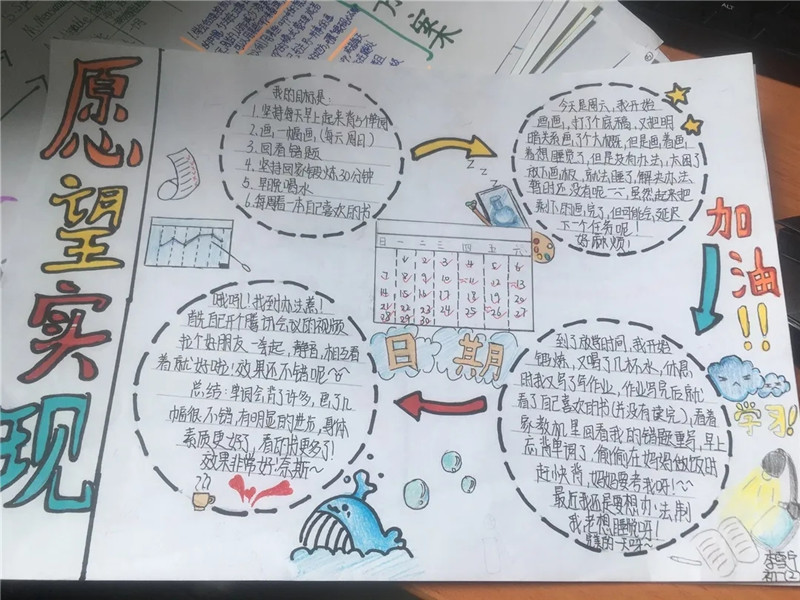 愿望实现
我的目标是:
1.坚持每天早上起来背5个单词
2.画一幅画,(每天周日)
3.回看错题
4.坚持回家锻炼30分钟
5.早晚喝水
6.每周看一本自己喜欢的书
今天是周六,我开始
画画,打了个底稿,又把明
暗关系画了个大概,但是画着画,
着想睡觉了,但是没有办法,太困了
放下画板,就去睡了,解决办法,
暂时还没有呢
剩下的画完了,但可能会延迟
下一个任务呢!
好麻烦!
加油!!
日一二三四五六
日期
到了放学时间,我开始
锻炼,又喝了几杯水,休息
时我又写了写作业,作业写完后就
看了自己喜欢的书(并没有读完),看着
家教机里回看我的错题重写,早上
忘背单词了,偷偷在妈妈做饭时
赶快背,妈妈要考我呀!~
最近我还是要想办法制
我老想睡觉呀!
学习!
哦吼!我找到办法煮!
首先自己开个腾讯会议的视频
拉个好朋友一起,静音,相互看
着就好啦!效果还不错呢~
总结:单词会背了许多,画了几
幅很不错,有明显的进步,身体
素质更好了,看的书更多了!
效果非常好奈斯~